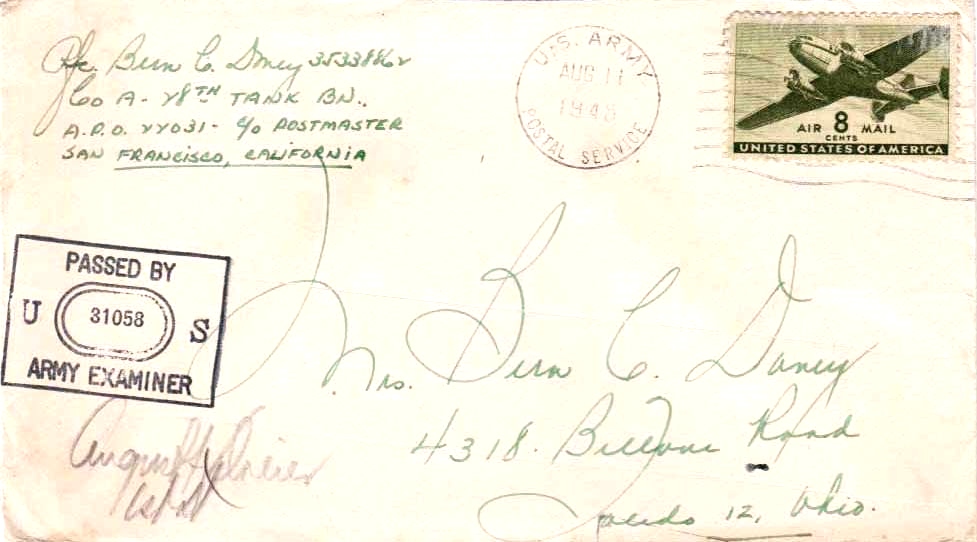 Pfc. Bern C. Dancy 35338862
Co A - 28TH TANK BN..
A.P.O. 22031 - c/o POSTMASTER
SAN FRANCISCO, CALIFORNIA
U.S. ARMY
AUG 11
1945
POSTAL SERVICE
AIR 8 MAIL
CENTS
UNITED STATES OF AMERICA
PASSED BY
U 31058 S
ARMY EXAMINER
Mrs. Bern C. Dancy
4318. Road
Toledo 12, Ohio.